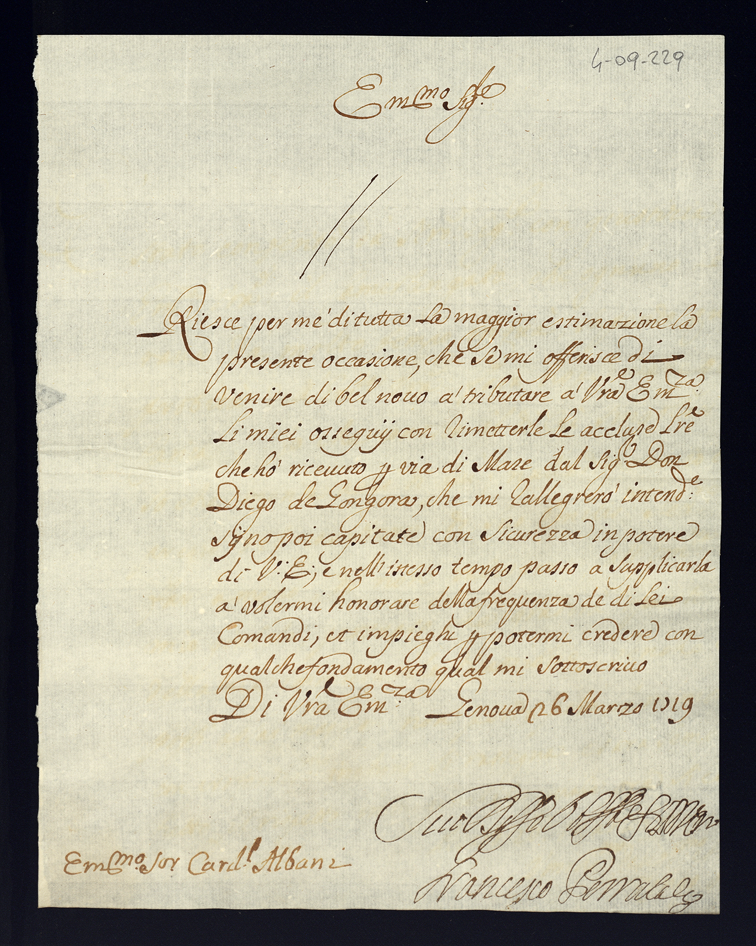 4-09-229
Em.mo Sig.re
Riesce per me di tutta la maggior estimazione la
presente occasione, che se mi offerisce di
venire di bel nouo a' tributare a' Vra Em.za
li miei osseguij con rimetterle le accluse Lre
che hò riceuuto p via di Mare dal Sig.r Don
Diego de Gongora, che mi rallegrerò intend.e
sijno poi capitate con sicurezza in potere
di V. E., e nell'istesso tempo passo a supplicarla
a' volermi honorare della frequenza de di lei
Comandi, et impieghi p potermi credere con
qualche fondamento qual mi sottoscriuo
Di Vra Em.za Genoua 26 Marzo 1719
Em.mo Sor Card.l Albani
Francesco